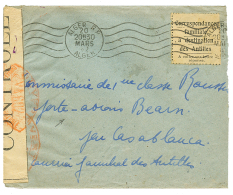 CONTROLE
ALGER R.P.
20
20H30
MARS
ALGER
Correspondance
familiale
à destination
des Antilles
Commissaire de 1re classe
porte-avions Bearn
par Casablanca
Courrier familial des Antilles